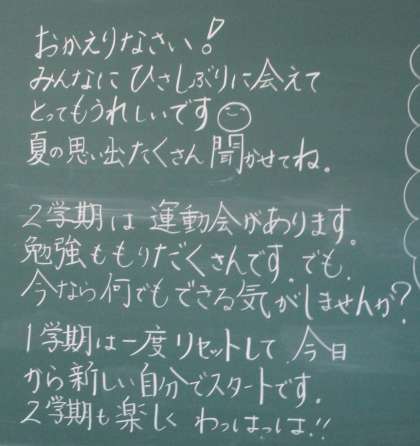 おかえりなさい!
みんなに ひさしぶりに会えて
とってもうれしいです
夏の思い出たくさん 聞かせてね。
2学期は 運動会があります。
勉強ももりだくさんです。でも、
今なら何でもできる気がしませんか?
1学期は一度リセットして、今日
から新しい自分でスタートです。
2学期も楽しく わっはっは!!